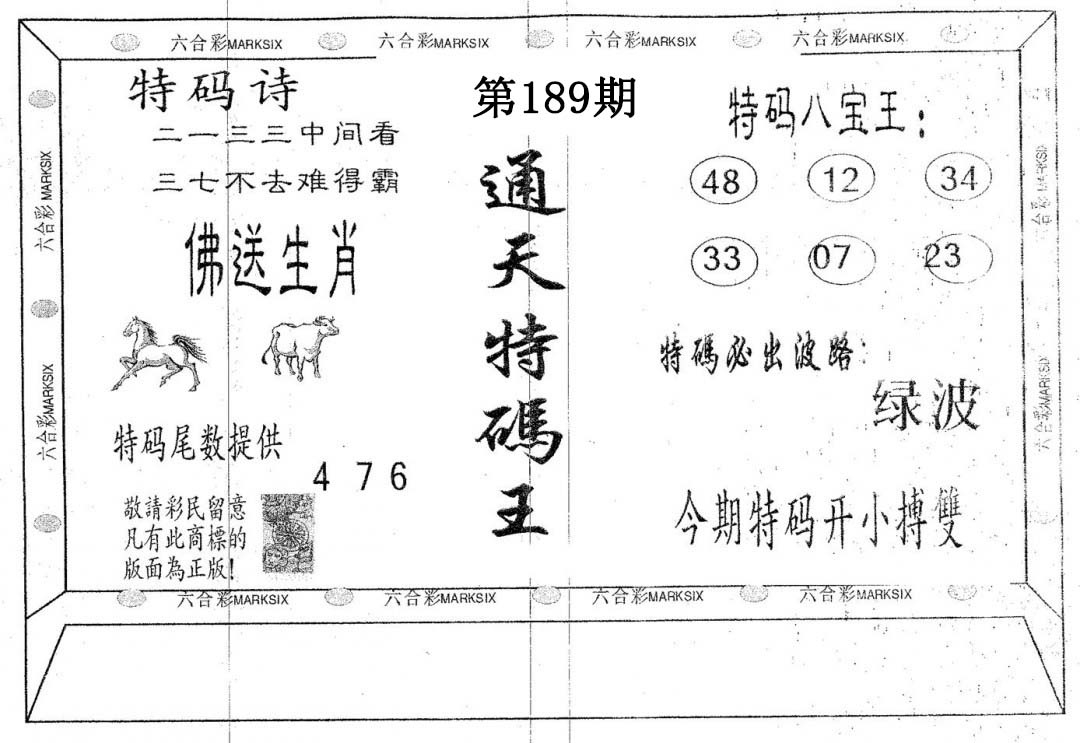 六合彩MARKSIX 六合彩MARKSIX 六合彩MARKSIX 六合彩MARKSIX
六合彩MARKSIX
六合彩MARKSIX
特码诗
二一三三中间看
三七不去难得霸
佛送生肖
特码尾数提供
4 7 6
敬請彩民留意
凡有此商標的
版面為正版!
第189期
通天特碼王
特码八宝王:
48 12 34
33 07 23
特碼必出波路:
绿波
今期特码开小搏雙
六合彩MARKSIX
六合彩MARKSIX
六合彩MARKSIX 六合彩MARKSIX 六合彩MARKSIX 六合彩MARKSIX